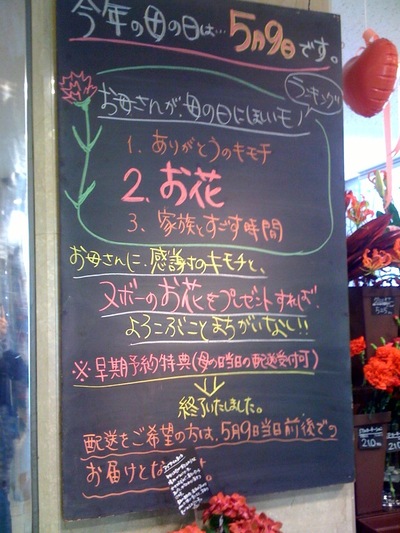 今年の母の日は…5月9日です。
お母さんが、母の日にほしいモノ
ランキング
1. ありがとうのキモチ
2. お花
3. 家族とすごす時間
お母さんに、感謝のキモチと、
ヌボーのお花をプレゼントすれば
よろこぶことまちがいなし!!
※早期予約特典(母の日当日の配送受付可)
終了いたしました。
配送をご希望の方は、5月9日当日前後での
お届けとな
210